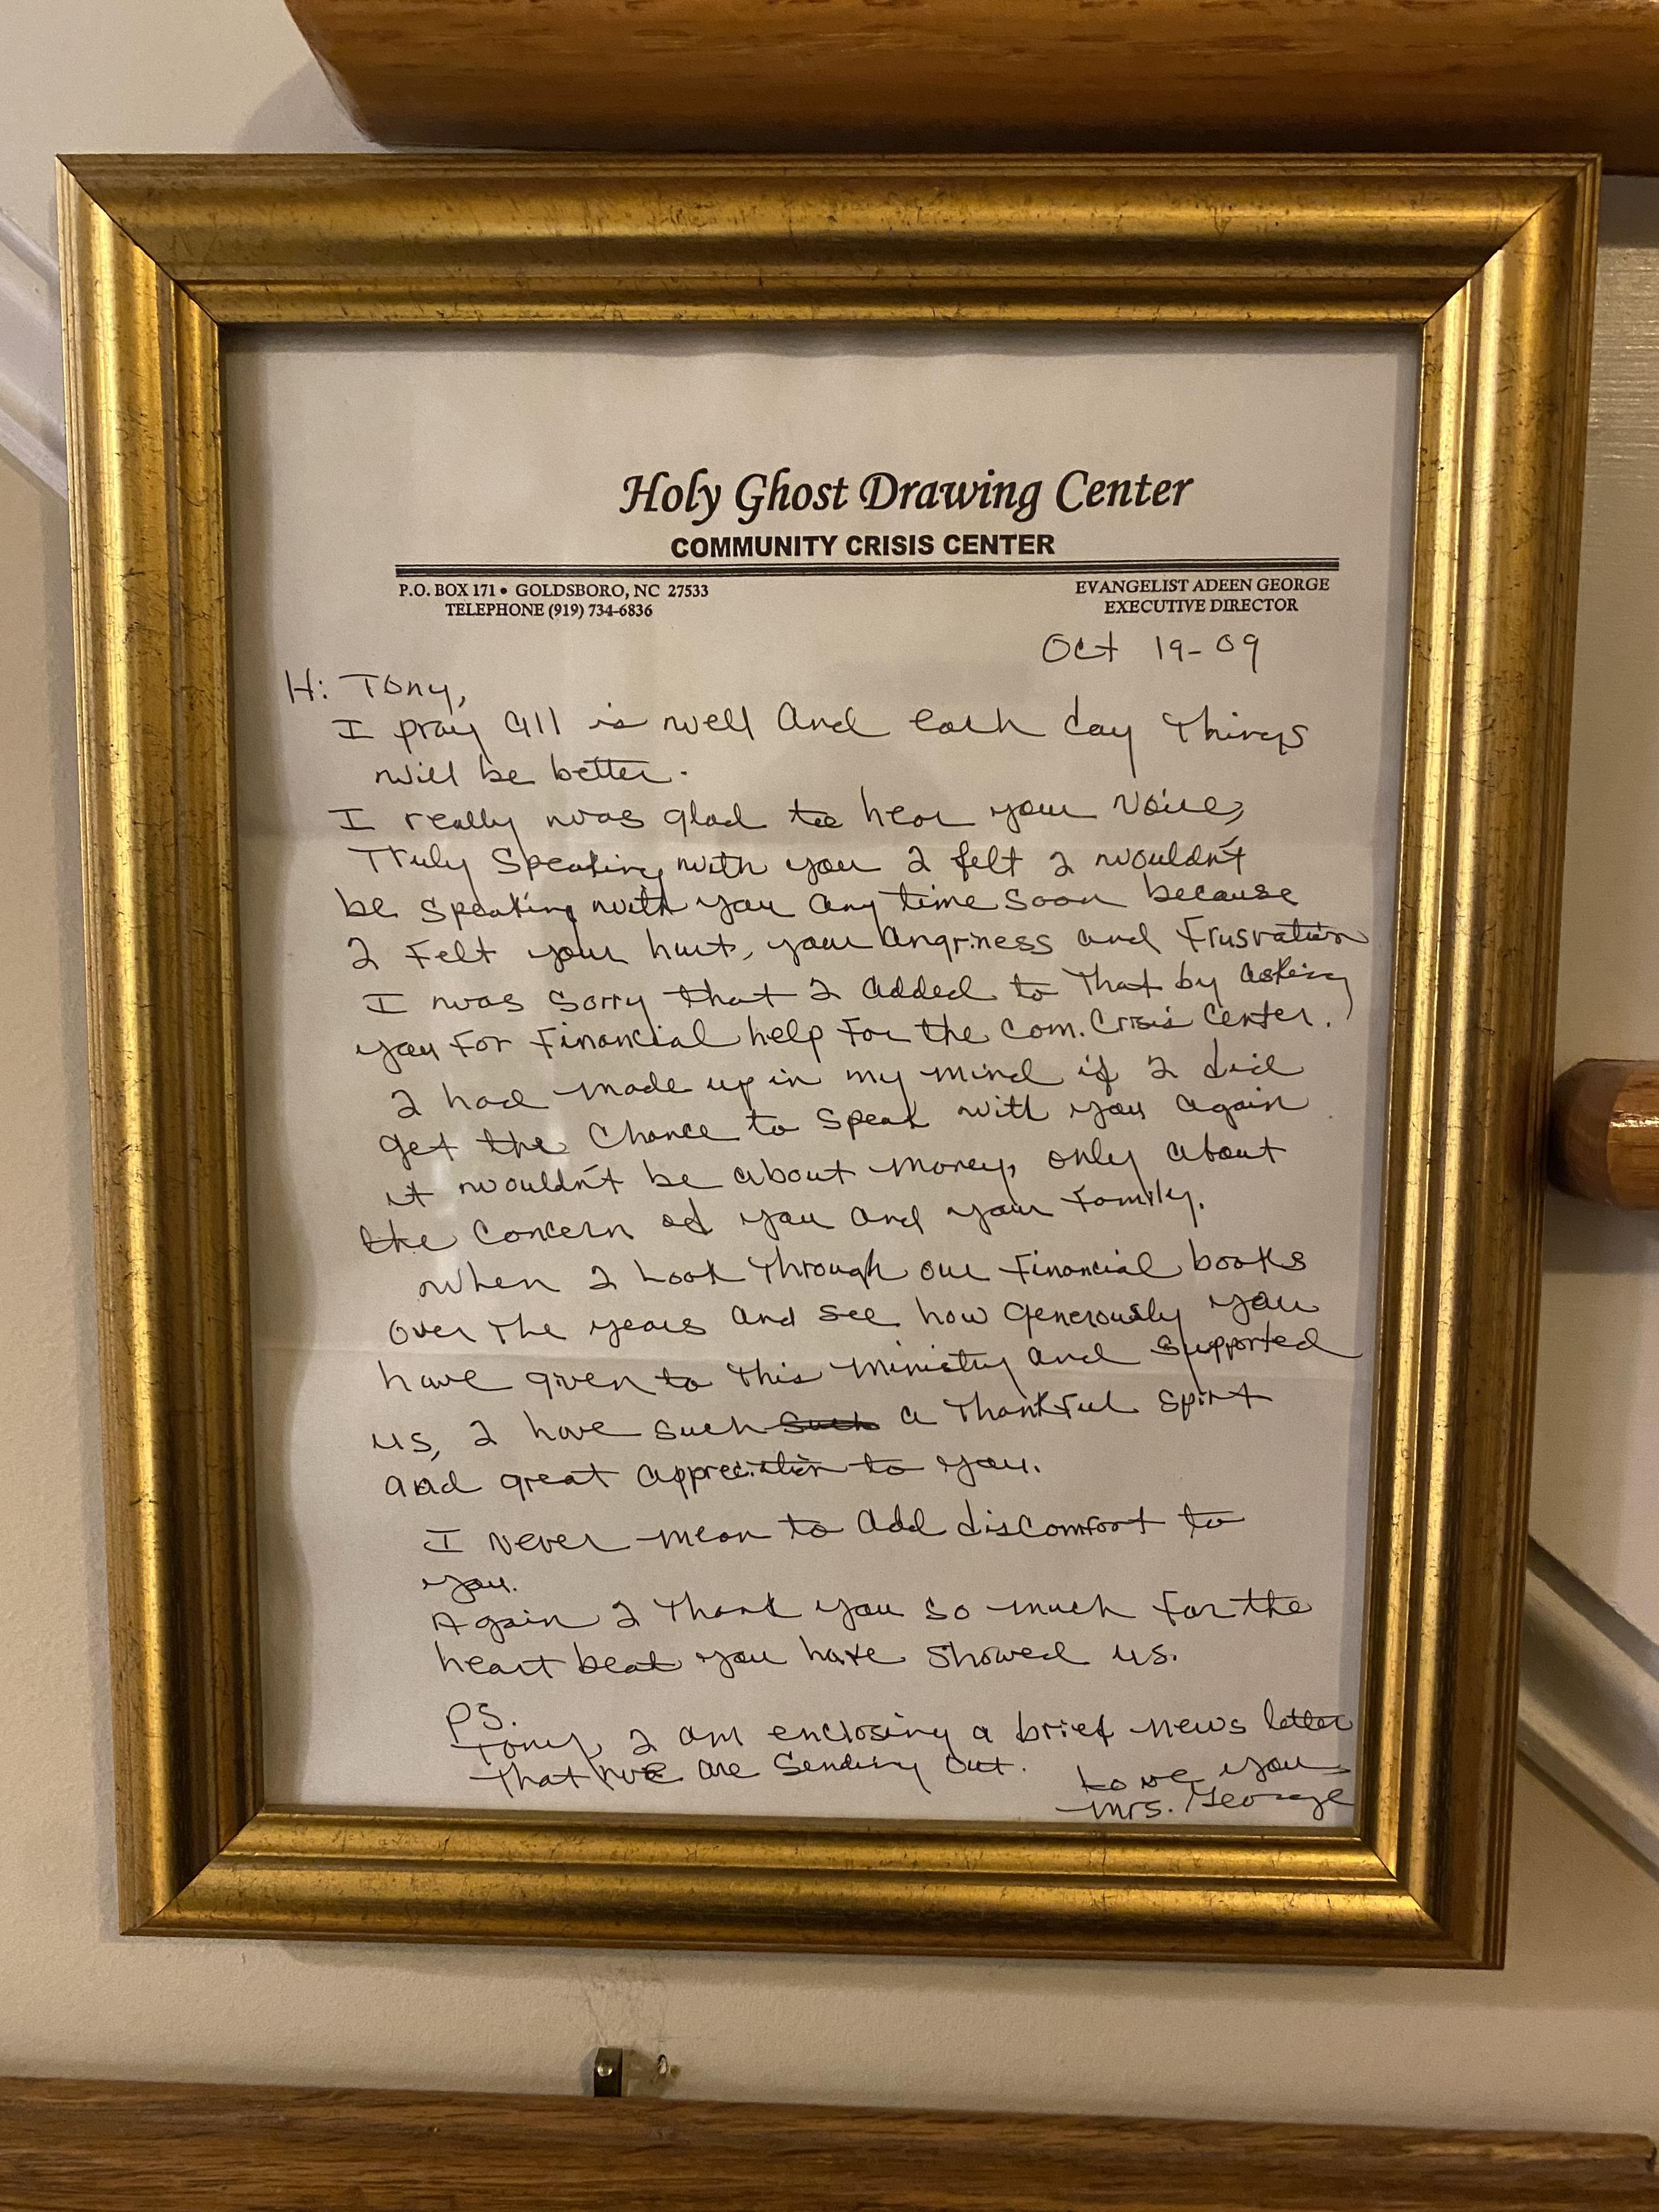 Holy Ghost Drawing Center
COMMUNITY CRISIS CENTER
P.O. BOX 171 • GOLDSBORO, NC 27533
TELEPHONE (919) 734-6836
EVANGELIST ADEEN GEORGE
EXECUTIVE DIRECTOR
Oct 19-09
Hi Tony,
I pray all is well and each day Things
will be better.
I really was glad to hear your voice,
Truly Speaking with you I felt I wouldn't
be speaking with you any time soon because
I Felt your hurt, your angriness and Frusration
I was sorry that I added to that by asking
you For Financial help For the Com. Crisis Center.
I had made up in my mind if I did
get the Chance to speak with you again
it wouldn't be about money, only about
the concern of you and your Family.
When I Look Through our Financial books
over The years and see how generously you
have given to This ministry and supported
us, I have such such a Thankful Spirit
and great appreciation to you.
I never mean to add discomfort to
you.
Again I Thank you so much for the
heart beat you have showed us.
PS.
Tony, I am enclosing a brief news letter
that we are sending out.
Love you
Mrs. George